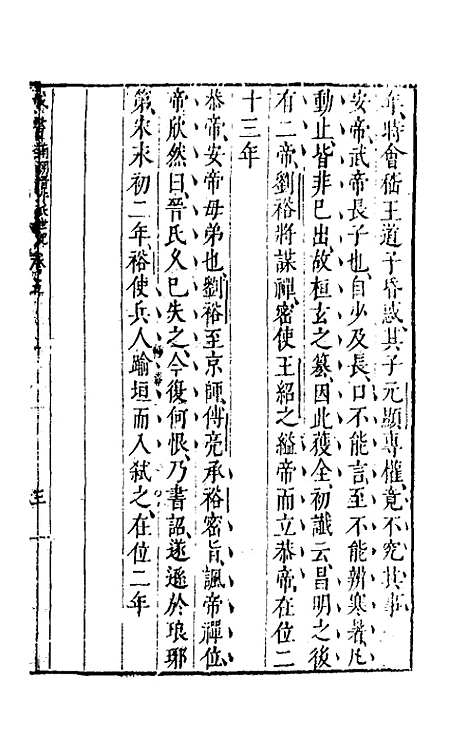 年時會稽王道子昏惑其子元顯專權竟不究其事
安帝武帝長子也自少及長口不能言至不能辨寒暑凡
動止皆非已出故桓玄之纂因此獲全初讖云昌明之後
有二帝劉裕將謀禪密使王紹之縊帝而立恭帝在位二
十三年
恭帝安帝母弟也劉裕至京師傅亮承裕密旨諷帝禪位
帝欣然曰晉氏久已失之今復何恨乃書詔遂遜於琅邪
第宋永初二年裕使兵人踰垣而入弑之在位二年
三